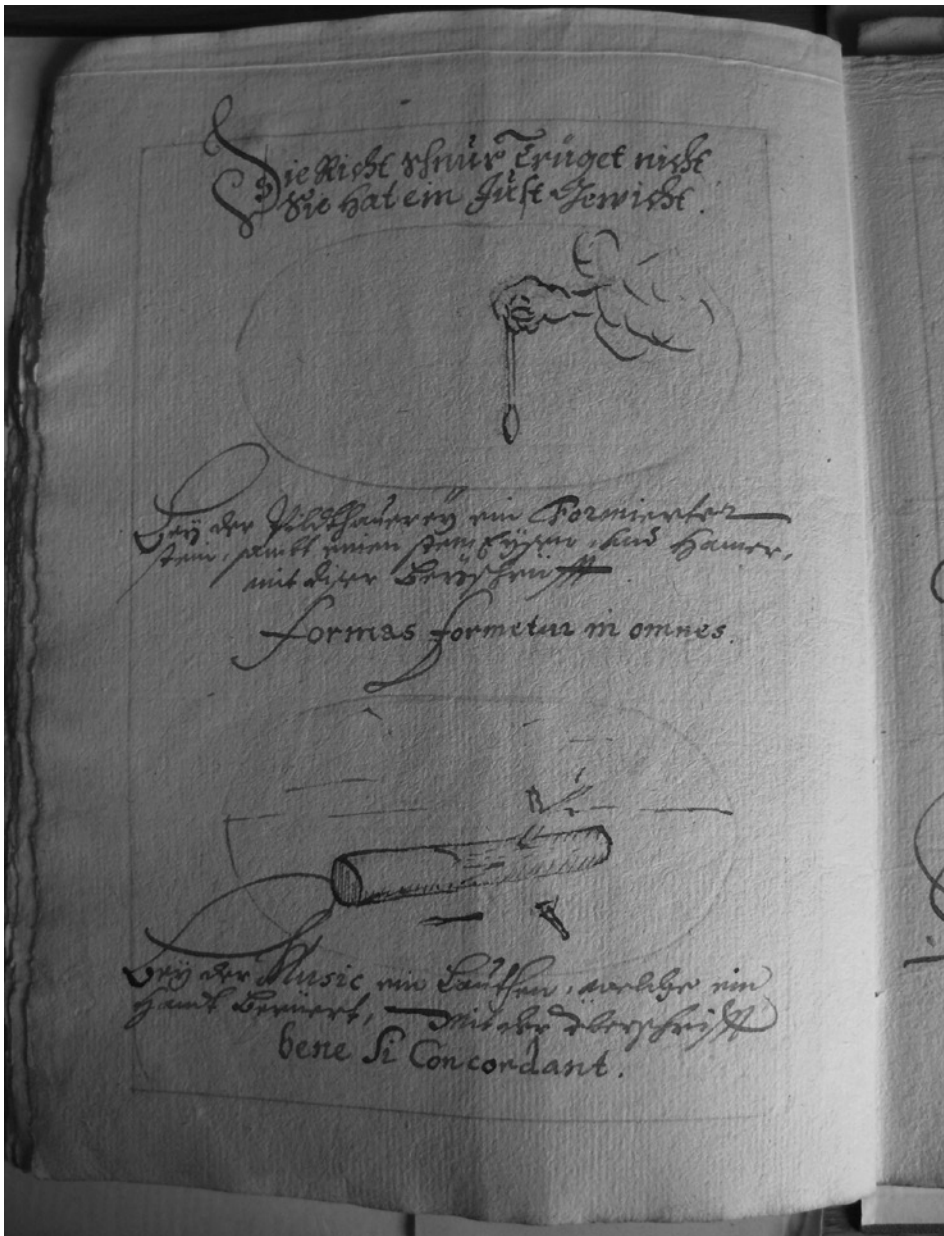 Die Richt schnur Trüget nicht
Sie hat ein Just Gewicht.
Beÿ der Pildthauereÿ ein Formierter
stein, sambt einen stem Eÿsen, und Hamer,
mit diser
formas formetur in omnes.
Beÿ der Music ein Lauthen, welche ein
Handt Beruert, Mit der Überschrifft
bene si Concordant.